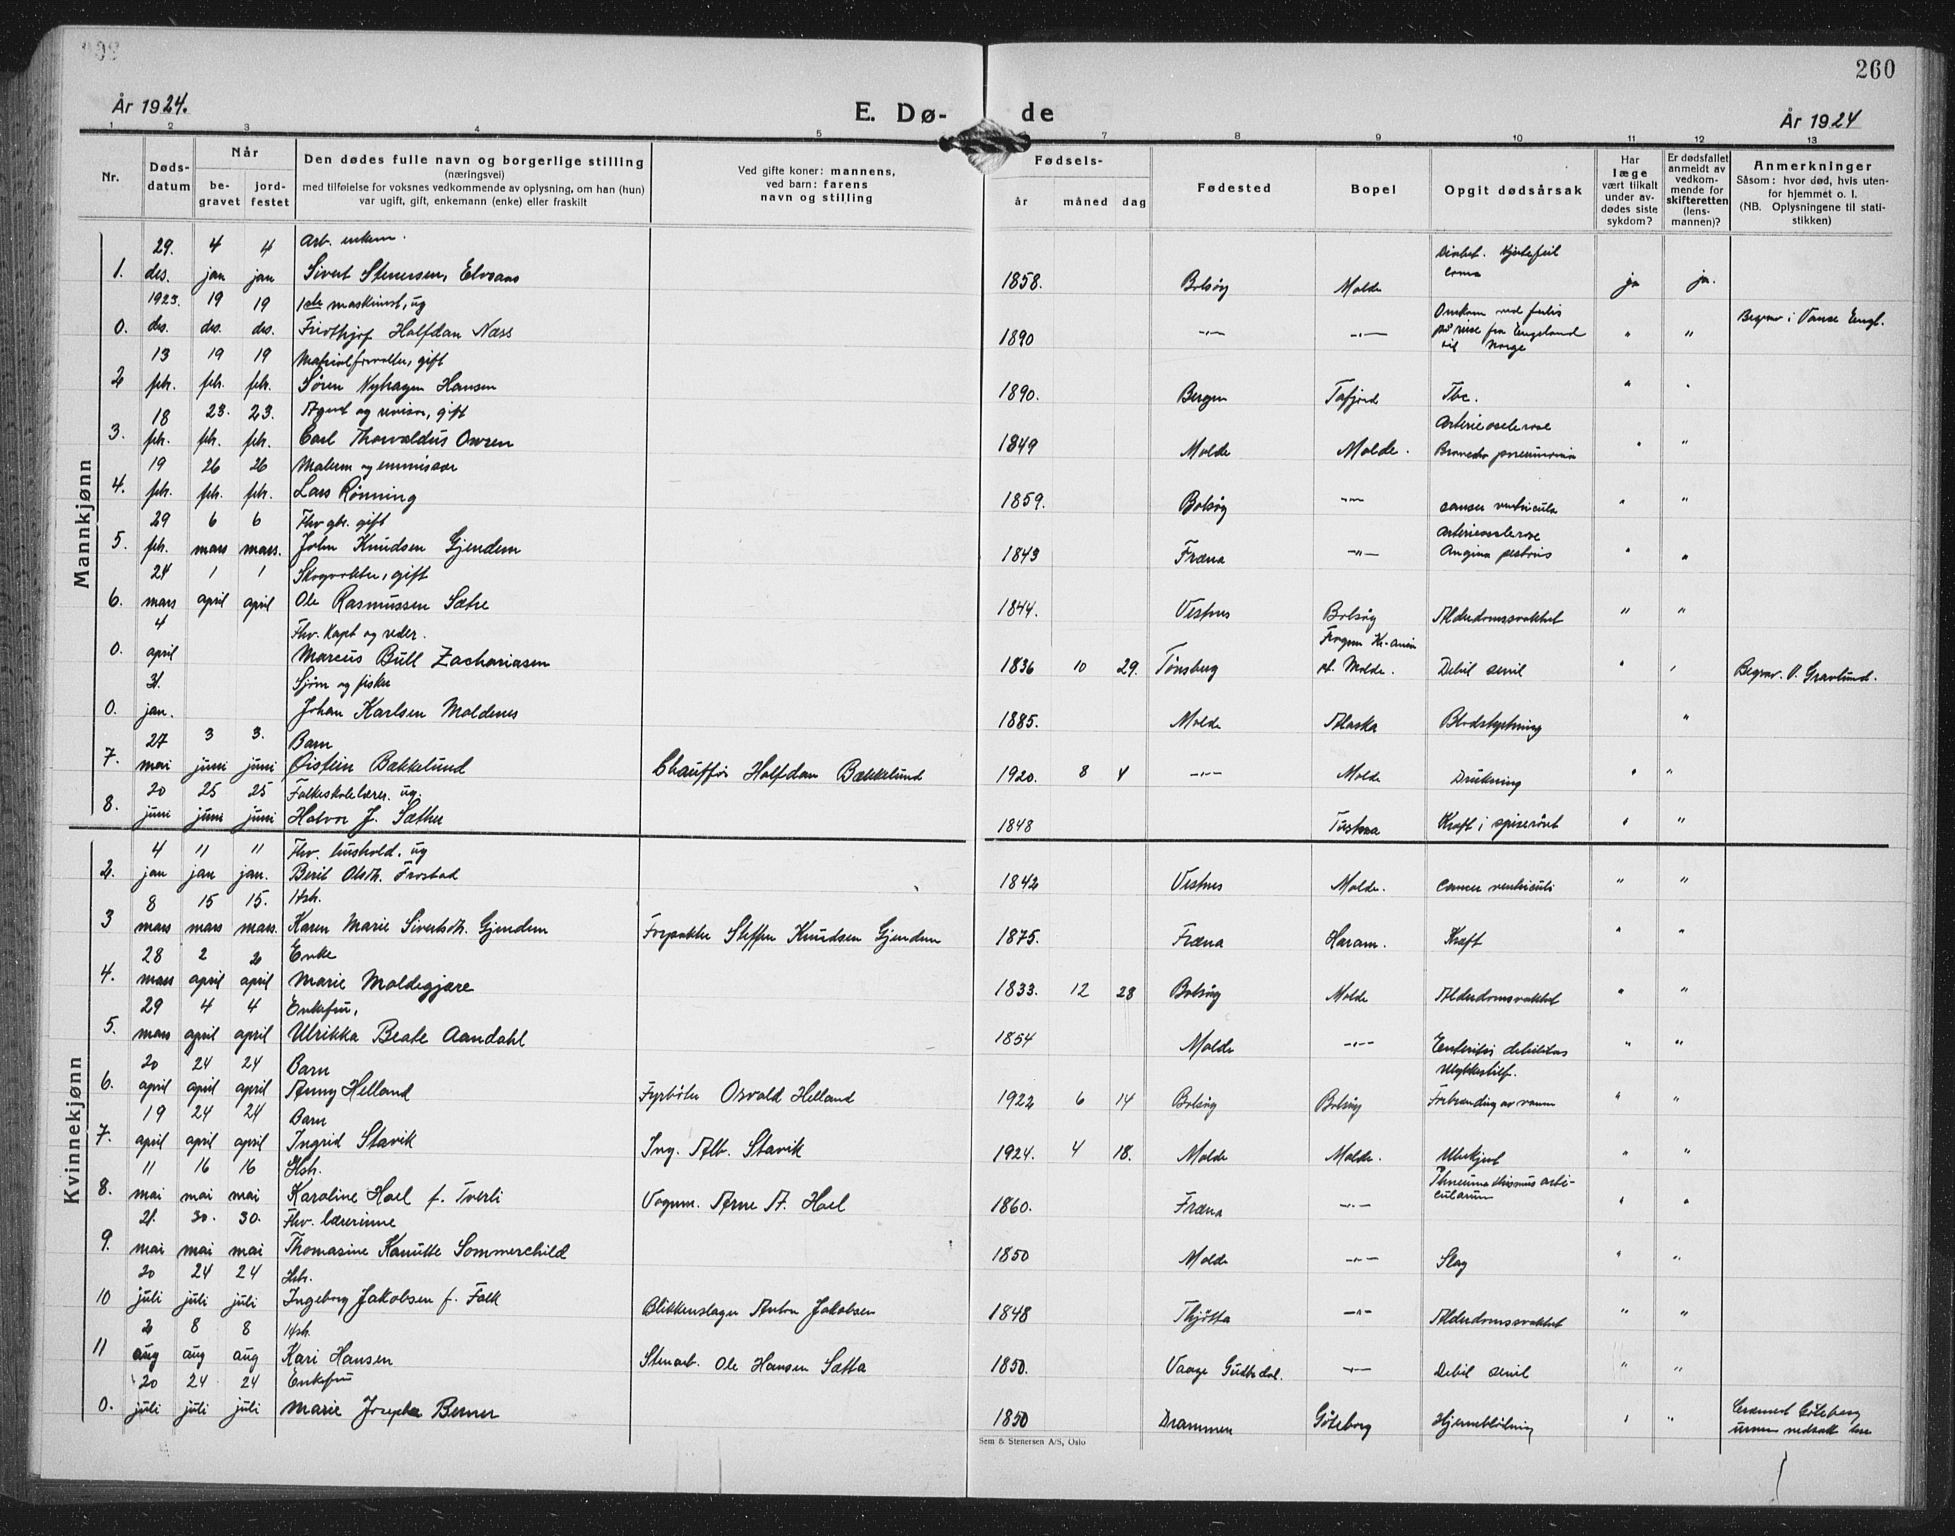 260
År 1924.
E. Dø-
de
År 1924
1 2 3 4 5 6 7 8 9 10 11 12 13
Nr.
Døds-
datum
Når
be-
gravet
jord-
festet
Den dødes fulle navn og borgerlige stilling
(næringsvei)
med tilføielse for voksnes vedkommende av oplysning, om han (hun)
var ugift, gift, enkemann (enke) eller fraskilt
Ved gifte koner: mannens,
ved barn: farens
navn og stilling
Fødsels-
år måned dag
Fødested
Bopel
Opgit dødsårsak
Har
læge
vært tilkalt
under av-
dødes siste
sykdom?
Er dødsfallet
anmeldt av
vedkom-
mende for
skifteretten
(lens-
mannen)?
Anmerkninger
Såsom: hvor død, hvis uten-
for hjemmet o. l.
(NB. Oplysningene til stati-
stikken)
Mannkjønn
29. 4 4 Arb. enkem.
1. des. jan jan Sivert Stenersen, Elvsaas 1858. Bolsøy Molde Diabet. Hjertefeil coma ja ja.
1923. 19 19 1ste maskinist, ug
0. des. des. des. Fridthjof Halfdan Næss 1890 -"- -"- Omkom ved forlis på reise fra Engeland til Norge " " Begrav i Vanse Engl.
13 19 19 Materialforvalter, gift
2 feb. feb. feb. Søren Nyhagen Hansen 1890. Bergen Tafjord Tbc. " "
18 23. 23. Agent og revisor, gift
3. feb. feb. feb. Carl Thorvaldus Owren 1849 Molde Molde. Arterieosclerose Broncho pneumonia " "
19 26 26 Malerm og emmissær
4. feb. feb. feb. Lars Rønning 1859. Bolsøy -"- cancer ventricula " "
29 6 6 Fhv gbr. gift
5. feb. mars mars. John Knudsen Gjendem 1843 Fræna -"- Arterieosclerose Angina pectoris " "
24 1 1 Skogvokter, gift
6. mars april april Ole Rasmussen Sætre 1844. Vestnes Bolsøy Alderdomssvakhet " "
4 Fhv. Kapt og reder.
0. april Marcus Bull Zachariasen 1836 10 29. Tønsberg Frogner Kr.ania Molde. Debil senil " " Begrav. V. Gravlund.
31. Sjøm og fisker
0. jan. Johan Karlsen Moldenes 1885. Molde Alaska Blodstyrtning "
27 3 3. Barn
7. mai juni juni Øistein Bækkelund Chauffør Halfdan Bækkelund 1920. 8 4 -"- Molde Drukning " "
20 25 25 Folkeskolelærer. ug.
8. juni juni juni Halvor J. Sæther 1848 Tustna Kræft i spiserøret " "
Kvinnekjønn
4 11 11 Fhv. hushold. ug
2. jan jan jan. Berit Olsdtr. Frostad 1842 Vestnes Molde. cancer ventriculi " "
8 15 15. Hsh.
3 mars mars mars. Karen Marie Sivertsdtr. Gjendem Forpakter Steffen Knudsen Gjendem 1875. Fræna Haram. Kræft " "
28 2 2 Enke
4. mars april april Marie Moldegjære 1833. 12 28 Bolsøy Molde Alderdomssvakhet " "
29 4 4 Enkefru,
5. mars april april Ulrikka Beate Aandahl 1854 Molde -"- Enteritis debilitas " "
20 24 24 Barn
6. april april april Anny Helland Fyrbøter Osvald Helland 1922 6 14 Bolsøy Bolsøy Ulykkestilf. Forbrænding av varm " "
19 24 24 Barn
7. april april april Ingrid Stavik Ing. Alb. Stavik 1924. 4 18. Molde Molde. Ubekjent " "
11 16 16 Hsh.
8. mai mai mai Karoline Hoel f. Tverli Vognm. Arne A. Hoel 1860. Fræna -"- " "
21. 30. 30. Fhv. lærerinne
9. mai mai mai Thomasine Kanutte Sommerschild 1850 Molde -"- Slag " "
20 24 24 Hsh.
10 juli juli juli Ingeborg Jakobsen f. Falk Blikkenslager Anton Jakobsen 1848 Thjøtta -"- Alderdomssvakhet " "
2 8 8 Hsh.
11 aug aug aug Kari Hansen Stenarb. Ole Hansen Sætta 1850. Vaage Gudbdal. -"- Debil senil " "
20 24 24 Enkefru
0. juli juli juli Marie Josepha Berner 1850 Drammen Göteborg Hjerneblødning " " Cremert Göteborg urnen nedsatt her
Sem & Stenersen A/S, Oslo